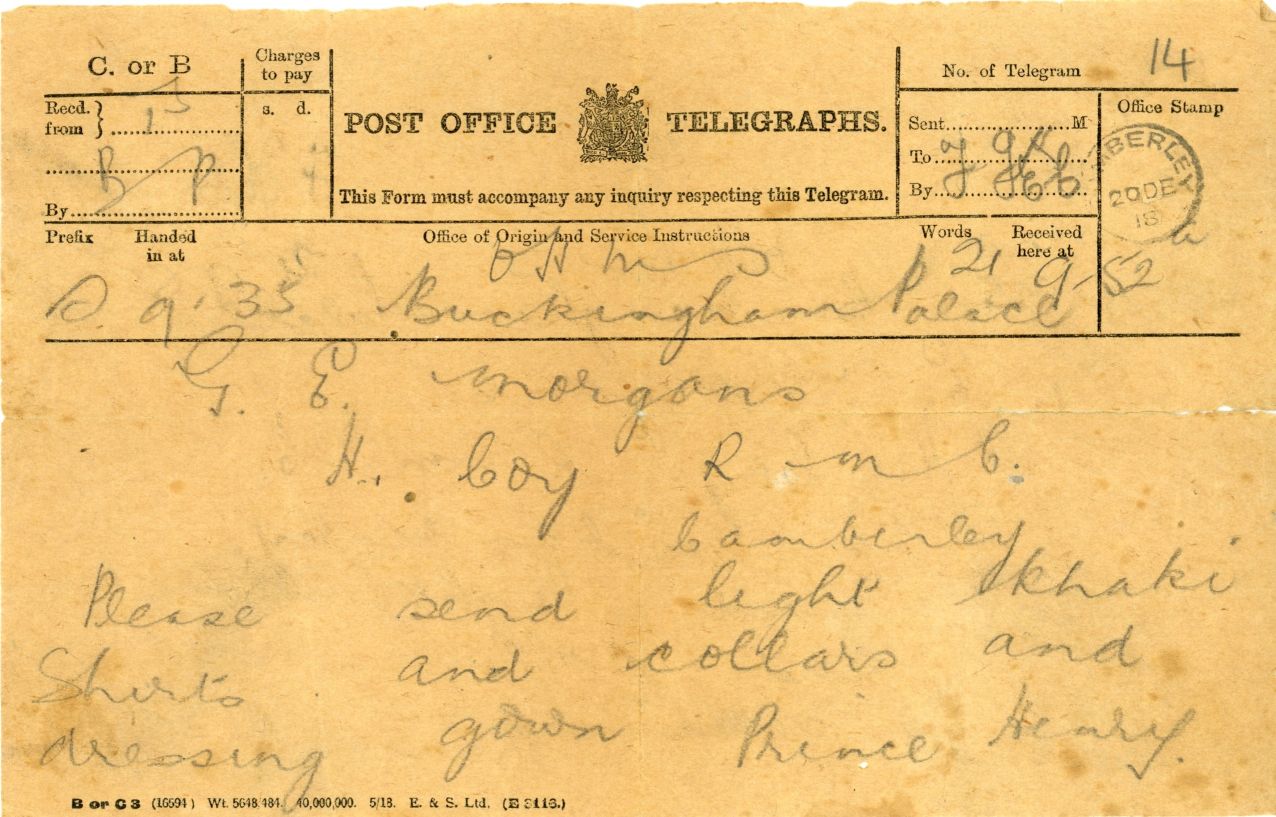 C. or B
Charges
to pay
s. d.
Recd.
from
B P
By
POST OFFICE TELEGRAPHS.
This Form must accompany any inquiry respecting this Telegram.
No. of Telegram 14
Sent M
To
By
Office Stamp
MBERLEY
20 DE
18
Prefix Handed
in at
Office of Origin and Service Instructions
Words Received
here at
OHMS 21 9-52
9.35 Buckingham Palace
G. E. Morgans
H. Coy R M C.
Camberley
Please send light khaki
Shirts and collars and
dressing gown Prince Henry.
B or C 3 (16594) Wt. 5648/484. 40,000,000. 5/18. E. & S. Ltd. (E 3116.)